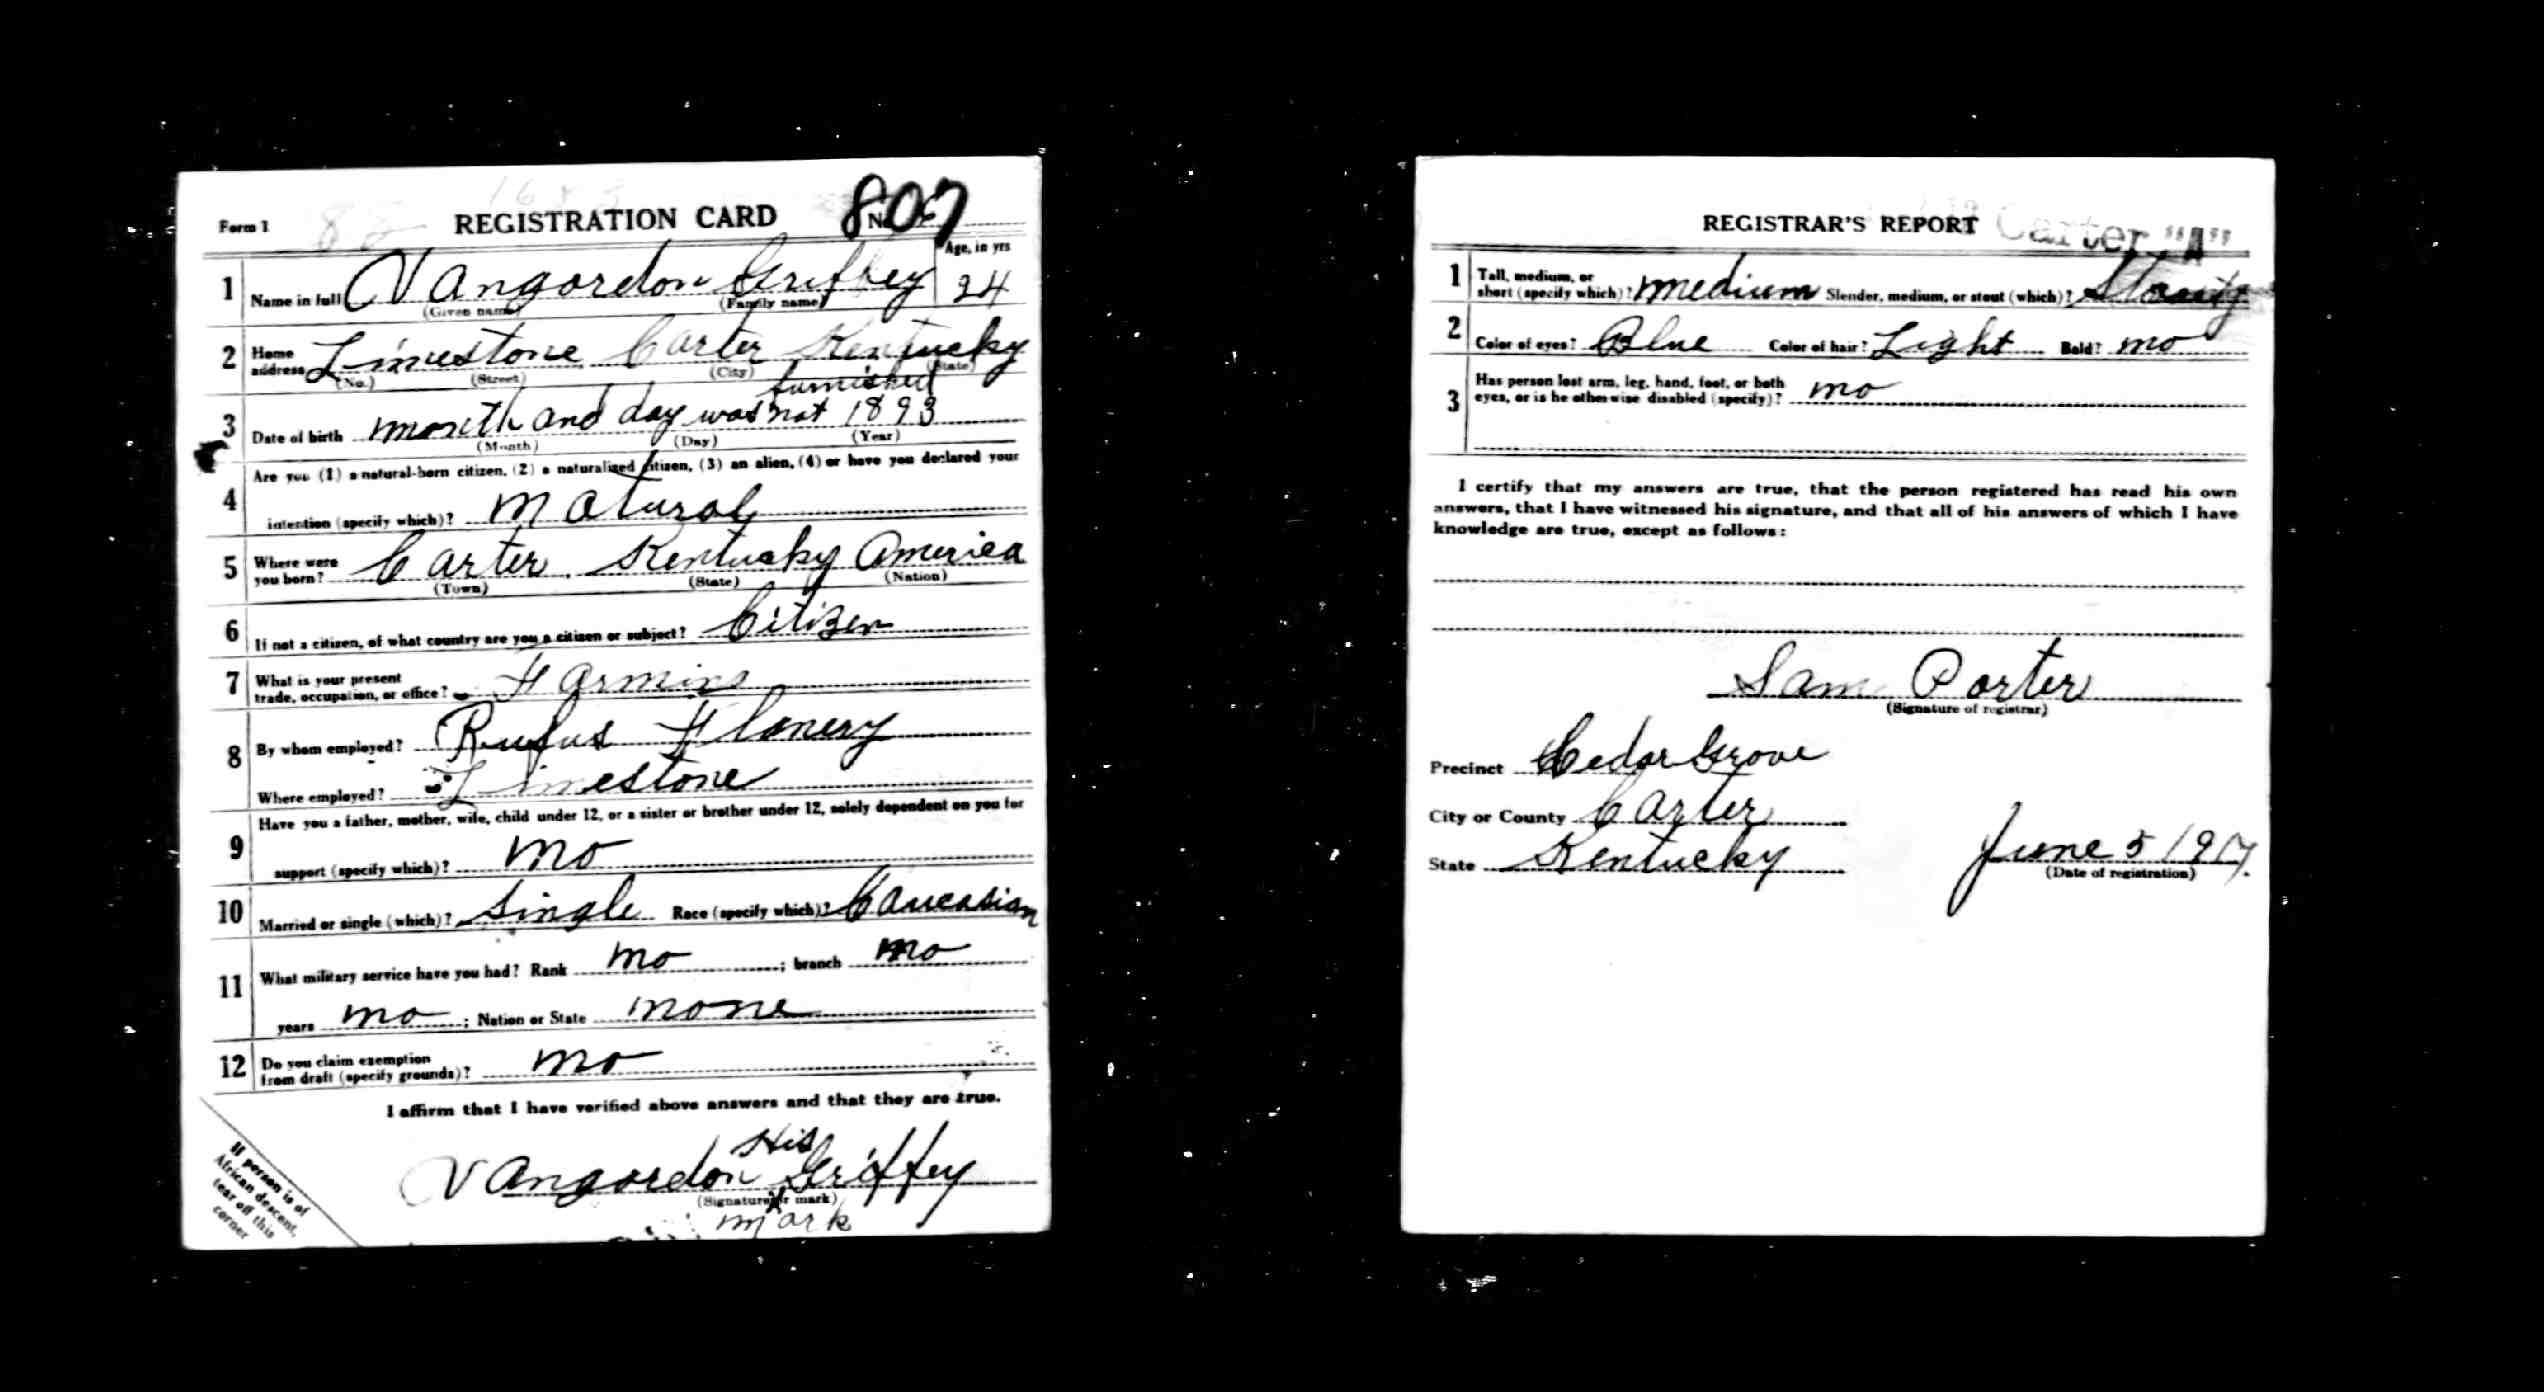 Form 1 REGISTRATION CARD No. 807
Age, in yrs
1 Name in full Vangordon Griffey 24
(Given name) (Family name)
2 Home address Limestone Carter Kentucky
(No.) (Street) (City) (State)
furnished
3 Date of birth month and day was not 1893
(Month) (Day) (Year)
Are you (1) a natural-born citizen, (2) a naturalized citizen, (3) an alien, (4) or have you declared your
4 intention (specify which)? natural
5 Where were you born? Carter Kentucky America
(Town) (State) (Nation)
6 If not a citizen, of what country are you a citizen or subject? Citizen
7 What is your present
trade, occupation, or office? Farming
8 By whom employed? Rufus Flanery
Where employed? Limestone
Have you a father, mother, wife, child under 12, or a sister or brother under 12, solely dependent on you for
9 support (specify which)? no
10 Married or single (which)? Single Race (specify which)? Caucasian
11 What military service have you had? Rank no ; branch no
years no ; Nation or State none
12 Do you claim exemption
from draft (specify grounds)? no
I affirm that I have verified above answers and that they are true.
His
Vangordon Griffey
(Signature or mark)
x
mark
If person is of
African descent,
tear off this
corner
REGISTRAR'S REPORT Carter "A"
1 Tall, medium, or
short (specify which)? medium Slender, medium, or stout (which)?
2 Color of eyes? Blue Color of hair? Light Bald? no
3 Has person lost arm, leg, hand, foot, or both
eyes, or is he otherwise disabled (specify)? no
I certify that my answers are true, that the person registered has read his own
answers, that I have witnessed his signature, and that all of his answers of which I have
knowledge are true, except as follows:
Sam Porter
(Signature of registrar)
Precinct Cedar Grove
City or County Carter
State Kentucky June 5 1917.
(Date of registration)